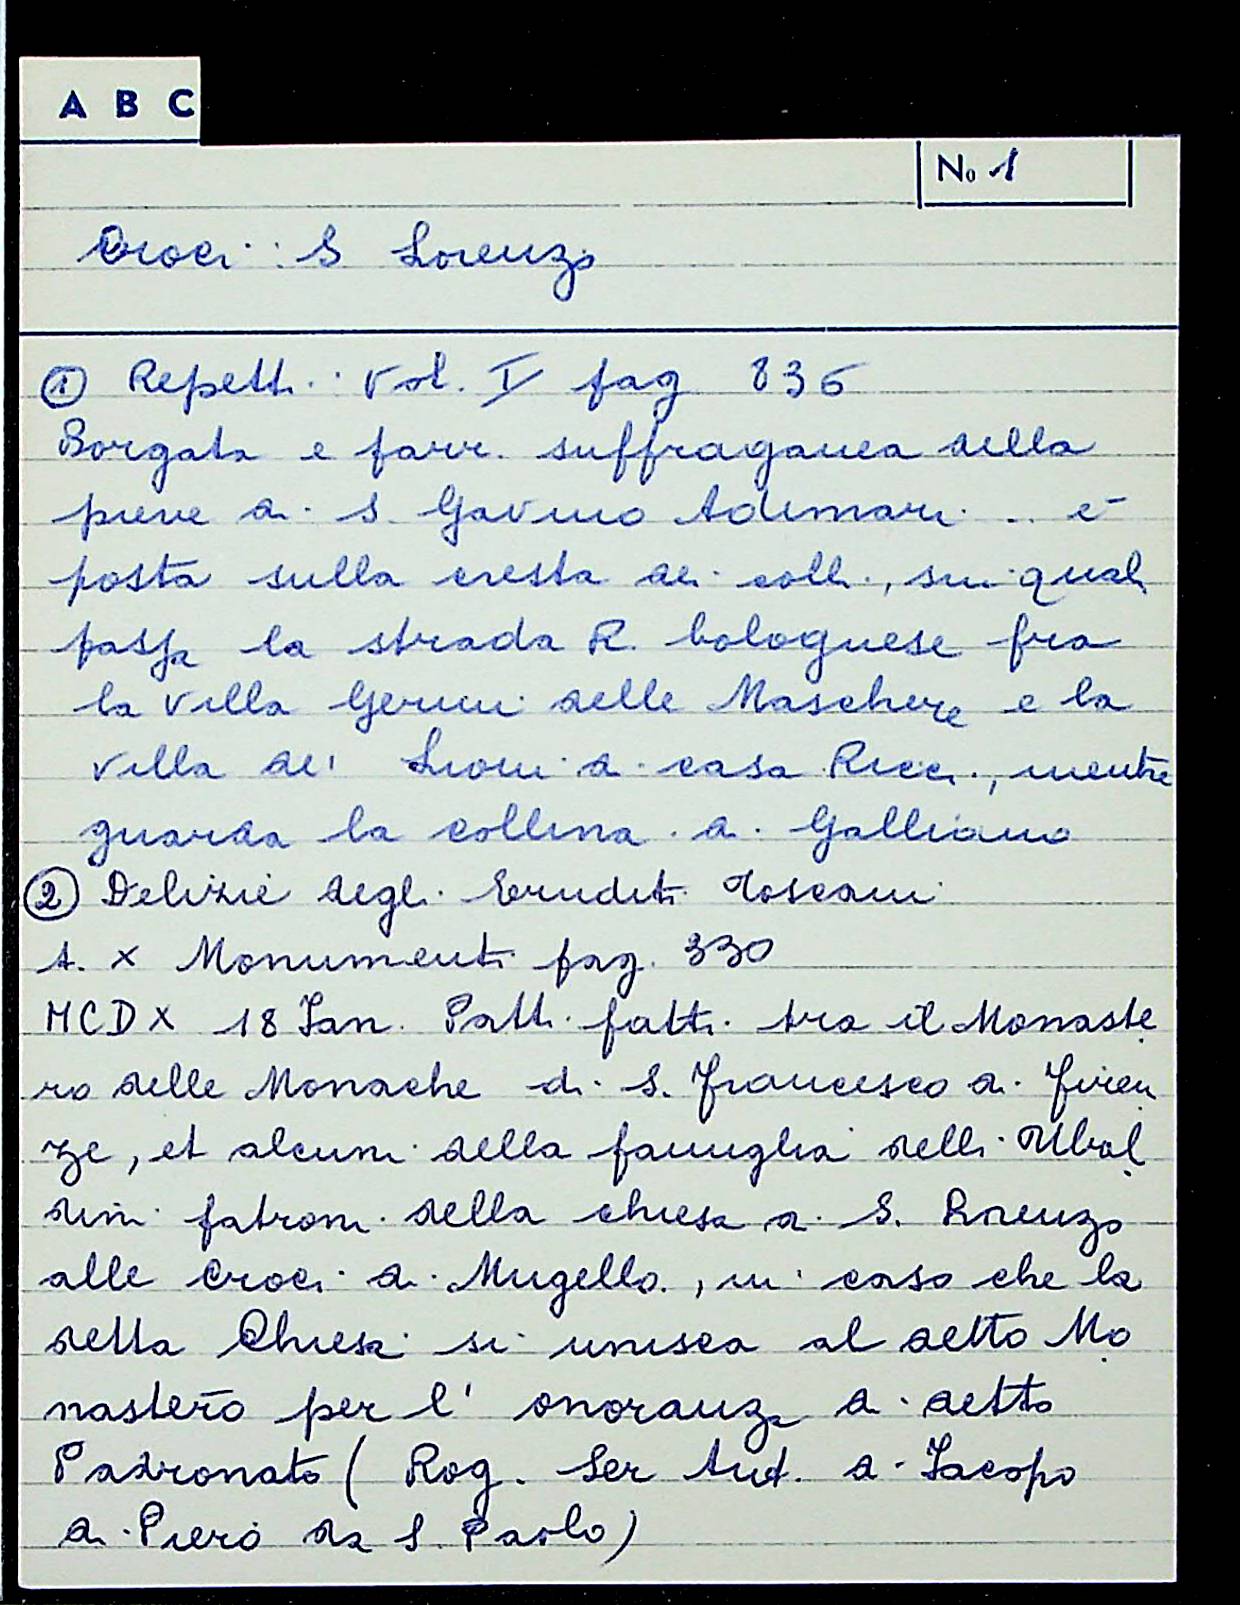 A B C
No 1
Croci: S Lorenzo
① Repetti: Vol. I pag 836
Borgata e parr. suffraganea della
pieve di S. Gavino Adimari .. è
posta sulla cresta dei colli, sui quali
passa la strada R. bolognese fra
la villa Gerini delle Maschere e la
villa dei Lioni di casa Ricci, mentre
guarda la collina di Galliano
② Delizie degli Eruditi Toscani
t. X Monumenti pag. 330
MCDX 18 Jan. Patti fatti tra il Monaste
ro delle Monache di S. Francesco di Firen
ze, et alcuni della famiglia delli Ubal
dini patroni della chiesa di S. Lorenzo
alle Croci di Mugello, in caso che la
detta Chiesa si unisca al detto Mo
nastero per l' onoranza di detto
Padronato ( Rog. Ser Ant. di Jacopo
di Piero da S. Paolo)